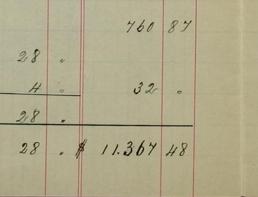 760 87
28 "
4 " 32 "
28 "
28 " $ 11.367 48